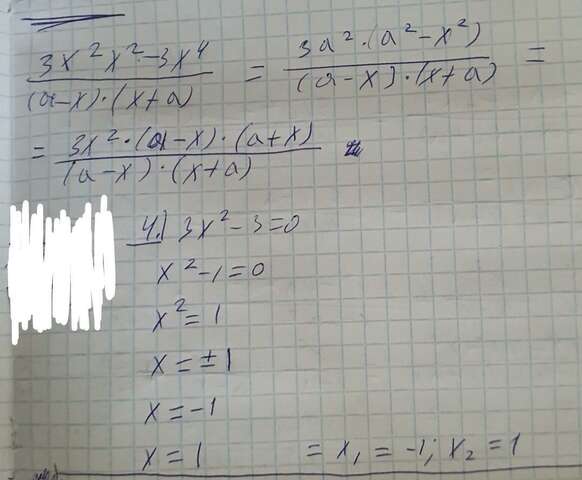 3x²x²-3x⁴/(a-x)·(x+a) = 3a²·(a²-x²)/(a-x)·(x+a) =
= 3x²·(a-x)·(a+x)/(a-x)·(x+a)
4.) 3x²-3=0
x²-1=0
x²=1
x=±1
x=-1
x=1 = x₁=-1; x₂=1